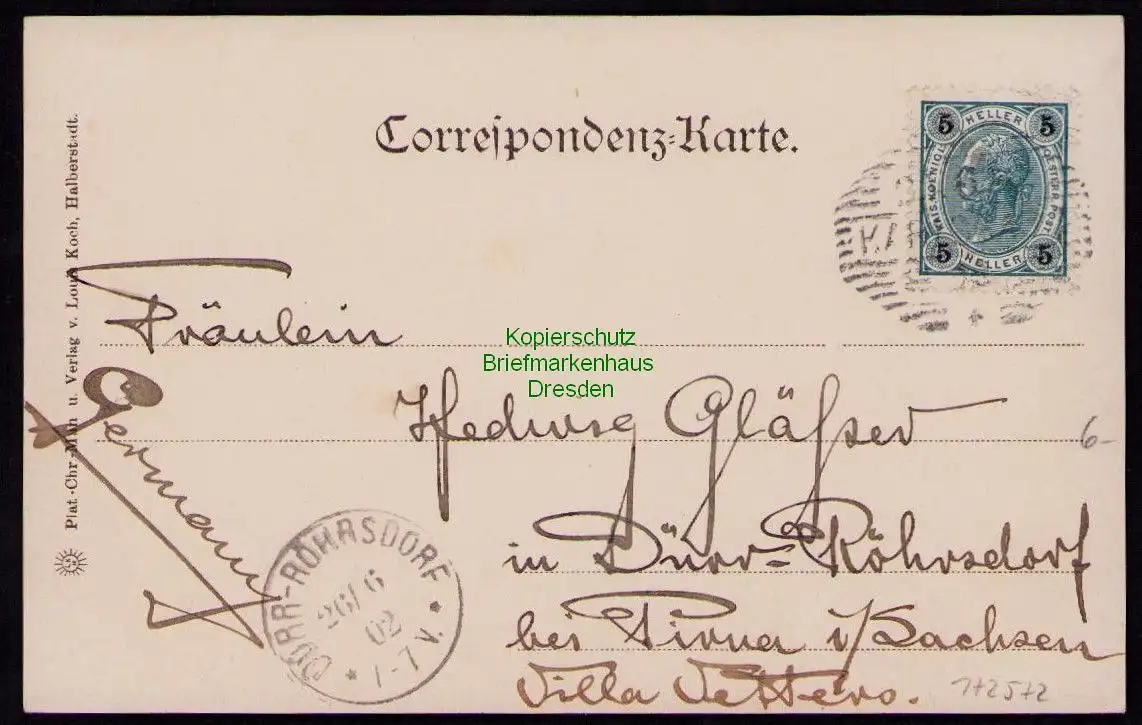 Correspondenz-Karte.
5 HELLER 5
KAIS. KOENIGL. OESTERR. POST
5 HELLER 5
Plat.-Chr.-Min u. Verlag v. Louis Koch, Halberstadt.
Fräulein
Kopierschutz
Briefmarkenhaus
Dresden
Hedwig Gläßer
6-
in Dürr-Röhrsdorf
bei Pirna i/Sachsen
Villa Vettero.
Germany
DÜRR-RÖHRSDORF
26/6
02
* 1-7 V. *
172572